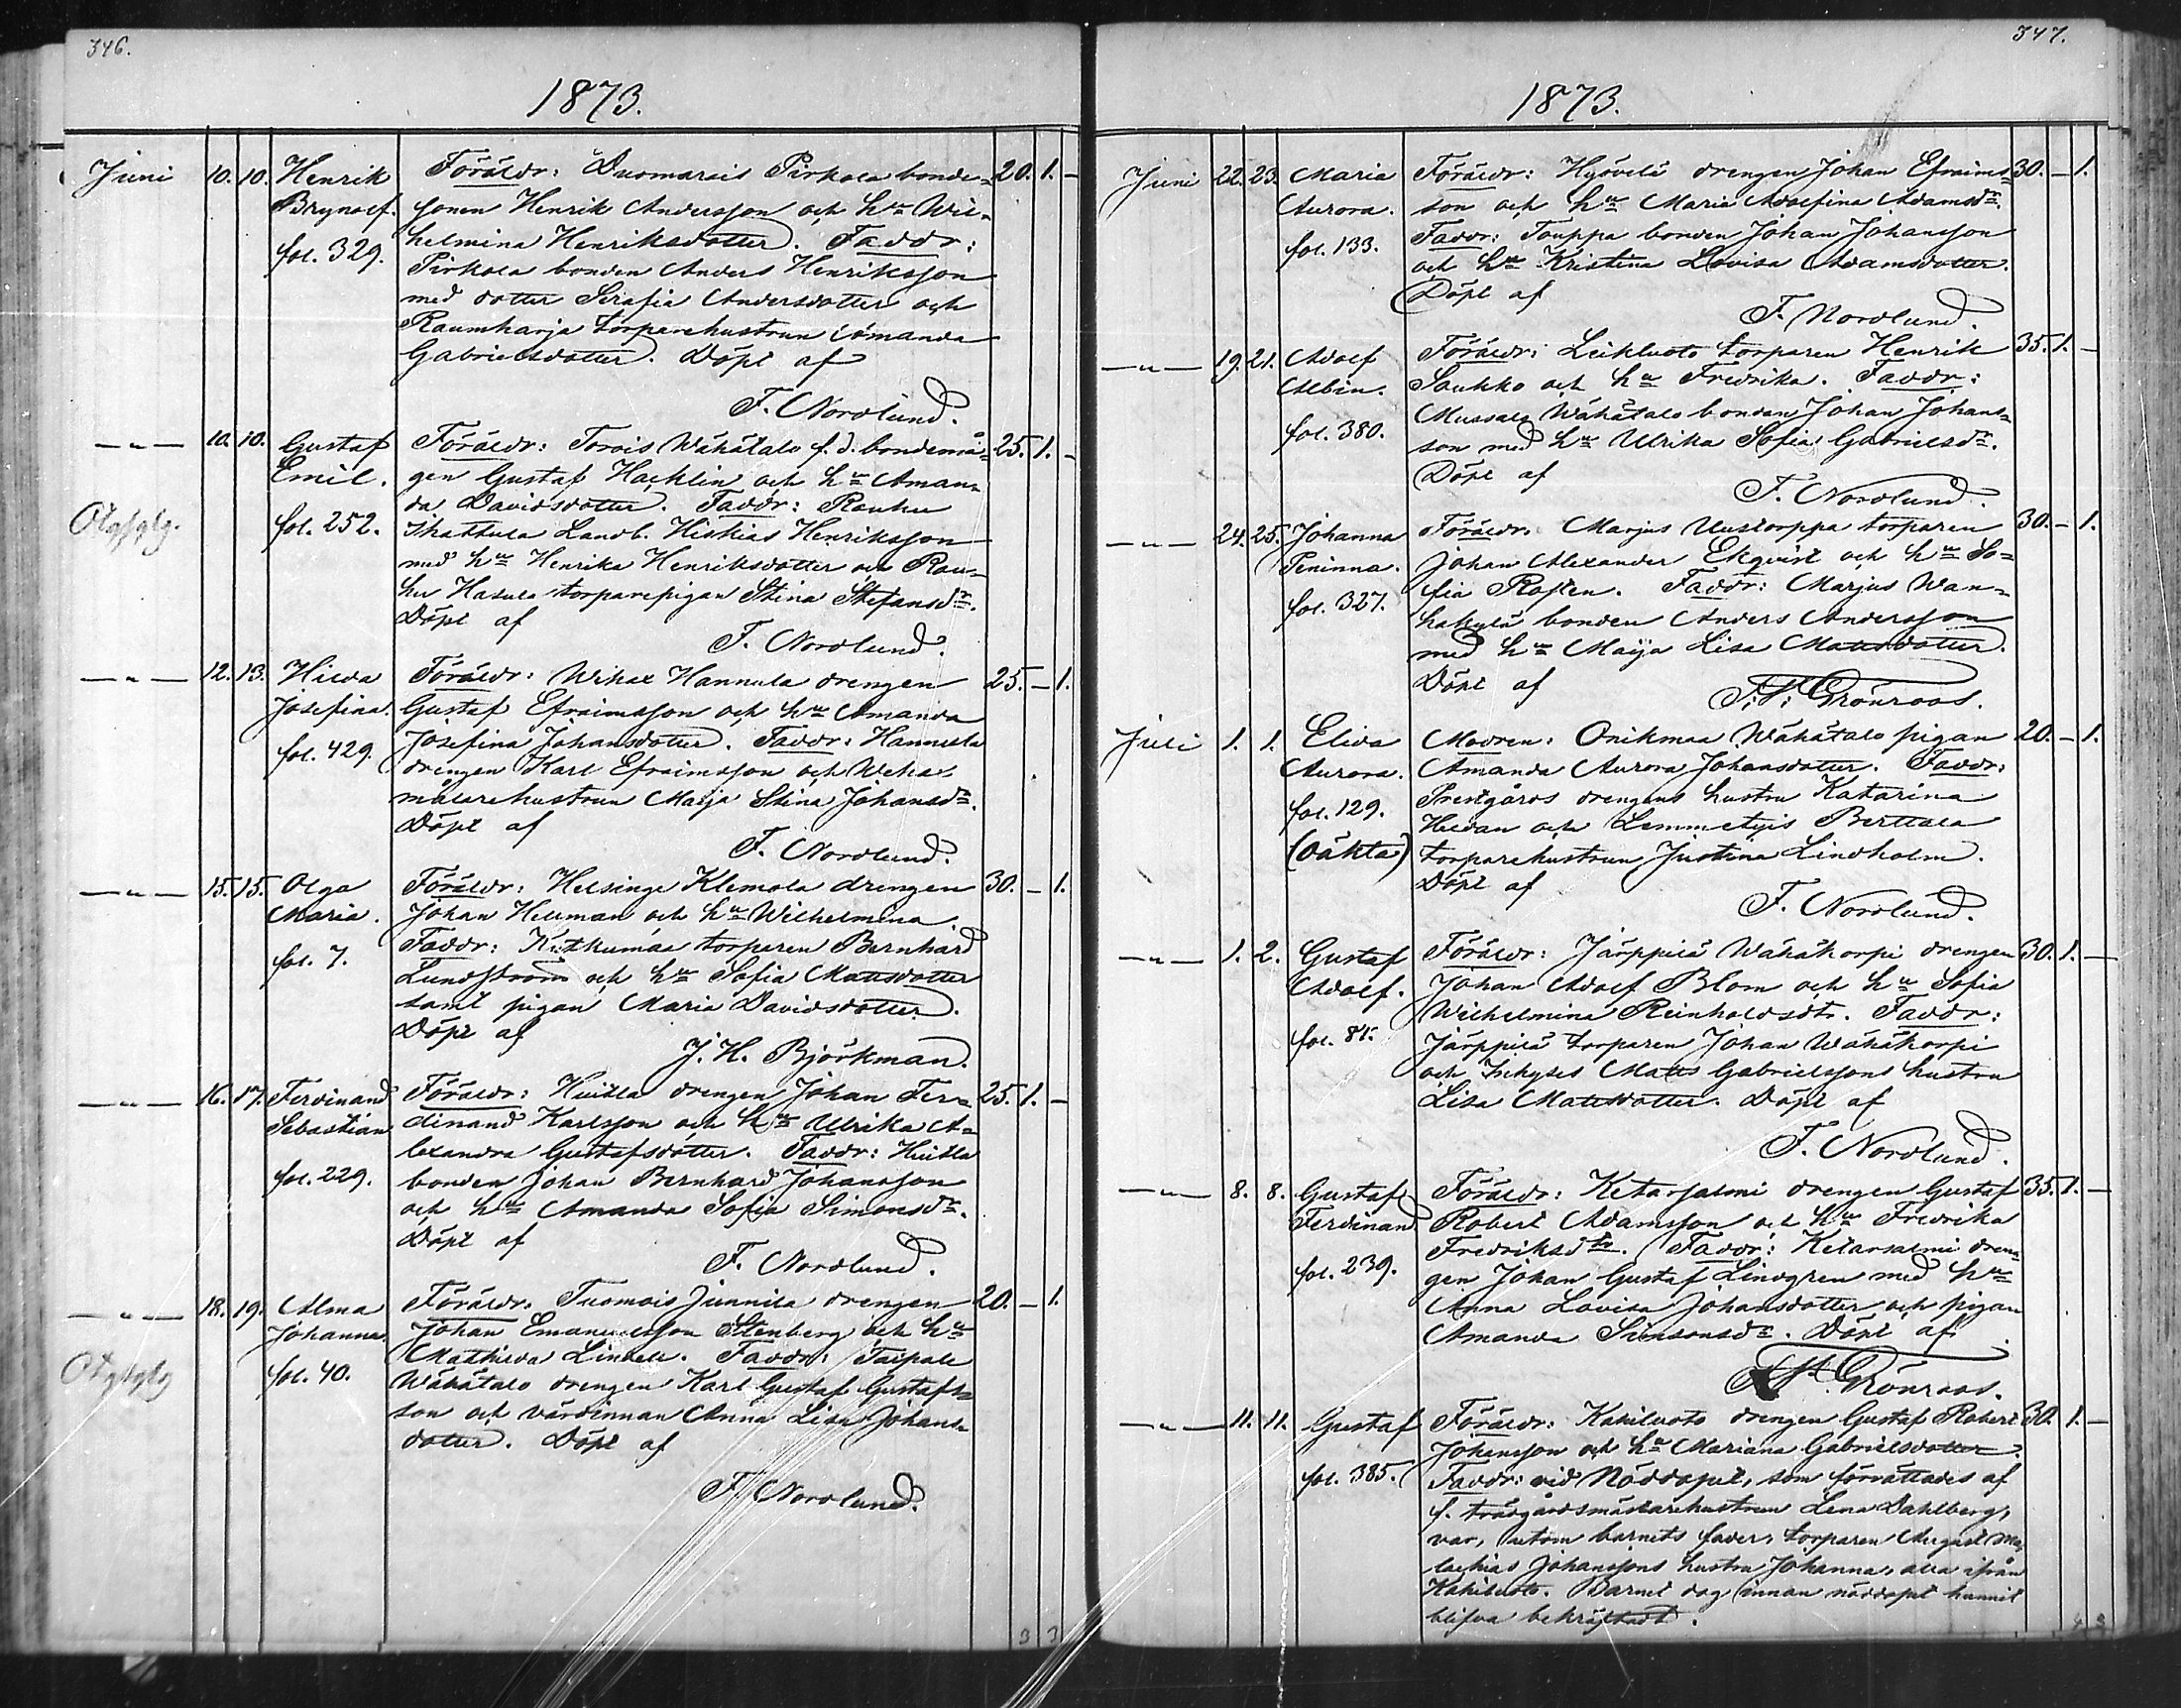 346.
1873.
Juni 10. 10. Henrik Föräldr: Duomarais Pirkola bonde- 20. 1. -
Brynolf. sonen Henrik Andersson och hu Wil-
helmina Henriksdotter. Faddr:
fol. 329. Pirkola bonden Anders Henriksson
med dotter Serafia Andersdotter och
Raumharja torparehustrun Amanda
Gabrielsdotter. Döpt af
F. Nordlund.
—"— 10. 10. Gustaf Föräldr: Torois Wähätalo f.d. bondemå- 25. 1. -
Emil. gen Gustaf Hacklin och hu Aman-
da Davidsdotter. Faddr: Rauhu
fol. 252. Landb. Hiskias Henriksson
med hu Henrika Henriksdotter och Rau-
hu Hasula torparepigan Stina Stefansdr.
Döpt af
F. Nordlund.
—"— 12. 13. Hilda Föräldr: Hannula drengen 25. - 1.
Josefina. Gustaf Efraimsson och hu Amanda
Josefina Johansdotter. Faddr: Hannula
fol. 429. drengen Karl Efraimsson och
målarehustrun Maija Stina Johansdr.
Döpt af
F. Nordlund.
—"— 15. 15. Olga Föräldr: Helsinge Klemola drengen 30. - 1.
Maria. Johan Hellman och hu Wilhelmina.
Faddr: torparen Bernhard
fol. 7. Lundström och hu Sofia Mattsdotter
samt pigan Maria Davidsdotter.
Döpt af
J. H. Björkman.
—"— 16. 17. Ferdinand Föräldr: Huitla drengen Johan Fer- 25. 1. -
Sebastian dinand Karlsson och hu Ulrika A-
lexandra Gustafsdotter. Faddr: Huitla
fol. 229. bonden Johan Bernhard Johansson
och hu Amanda Sofia Simonsdr.
Döpt af
F. Nordlund.
—"— 18. 19. Alma Föräldr: Tuomois Junnila drengen 20. - 1.
Johanna. Johan Emanuelsson Stenberg och hu
Mathilda Lindell. Faddr: Taipale
fol. 40. Wähätalo drengen Karl Gustaf Gustafs-
son och värdinnan Anna Lisa Johans-
dotter. Döpt af
F. Nordlund.
3 3
347.
1873.
Juni 22. 23. Maria Föräldr: Hyövelä drengen Johan Efraims- 30. - 1.
Aurora. son och hu Maria Adolfina Adamsdr.
fol. 133. Faddr: Touppa bonden Johan Johansson
och hu Kristina Lovisa Adamsdotter.
Döpt af
F. Nordlund.
—"— 19. 21. Adolf Föräldr: Leikluoto torparen Henrik 35. 1. -
Albin. Saukko och hu Fredrika. Faddr:
Mussalo Wähätalo bonden Johan Johans-
fol. 380. son med hu Ulrika Sofia Gabrielsdr.
Döpt af
F. Nordlund.
—"— 24. 25. Johanna Föräldr. Marjus Uustorppa torparen 30. - 1.
Peninna. Johan Alexander Ekqvist och hu So-
fol. 327. fia Rosten. Faddr: Marjus Wan-
hakylä bonden Anders Andersson
med hu Maija Lisa Mattsdotter.
Döpt af
Grönroos.
Juli 1. 1. Elida Modren: Onikmaa Wähätalo pigan 20. - 1.
Aurora. Amanda Aurora Johansdotter. Faddr:
Prestgårds drengens hustru Katarina
fol. 129. Heldan och Lemmetyis Berttala
(oäkta) torparehustrun Justina Lindholm.
Döpt af
F. Nordlund.
—"— 1. 2. Gustaf Föräldr: Järppilä Wähäkorpi drengen 30. 1. -
Adolf. Johan Adolf Blom och hu Sofia
Wilhelmina Reinholdsdtr. Faddr:
fol. 85. Järppilä torparen Johan Wähäkorpi
och Inhyses Matts Gabrielssons hustru
Lisa Mattsdotter. Döpt af
F. Nordlund.
—"— 8. 8. Gustaf Föräldr: Ketarsalmi drengen Gustaf 35. 1. -
Ferdinand Robert Adamsson och hu Fredrika
Fredriksdtr. Faddr: Ketarsalmi dren-
fol. 239. gen Johan Gustaf Lindgren med hu
Anna Lovisa Johansdotter och pigan
Amanda Simonsdr. Döpt af
Grönroos.
—"— 11. 11. Gustaf Föräldr: Kahiluoto drengen Gustaf Robert 30. 1. -
Johansson och hu Mariana Gabrielsdotter.
fol. 385. Faddr: vid Nöddopet, som förrättades af
f. trädgårdsmästarehustrun Lena Dahlberg,
var, utom barnets fader, torparen August Ma-
lachias Johanssons hustru Johanna, alla ifrån
Kahiluoto. Barnet dog innan nöddopet hunnit
blifva bekräftadt.
4 3